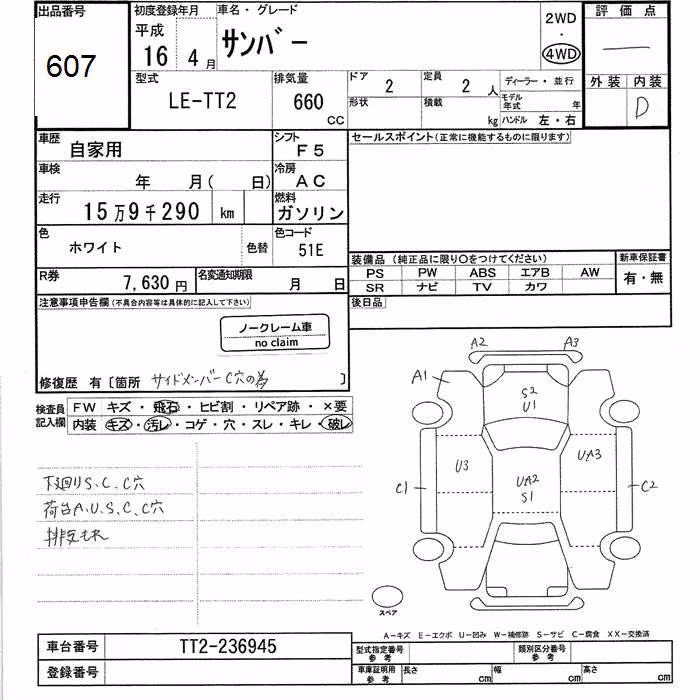 出品番号
607
初度登録年月
平成
16 4月
車名・グレード
サンバー
2WD
・
4WD
評価点
―
外装 内装
D
型式
LE-TT2
排気量
660
CC
ドア
2
定員
2 人
ディーラー・並行
形状
積載
kg
モデル年式 年
ハンドル 左・右
車歴
自家用
シフト
F5
車検
年 月( 日)
冷房
AC
走行
15万9千290 km
燃料
ガソリン
色
ホワイト
色替
色コード
51E
R券
7,630円
名変通知期限
月 日
セールスポイント(正常に機能するものに限ります)
装備品(純正品に限り○をつけてください)
新車保証書
PS PW ABS エアB AW
SR ナビ TV カワ
有・無
後日品
注意事項申告欄(不具合内容等は具体的に記入して下さい)
ノークレーム車
no claim
修復歴 有〔箇所 サイドメンバーC穴の為 〕
検査員記入欄
FW キズ・飛石・ヒビ割・リペア跡・×要
内装 キズ・汚レ・コゲ・穴・スレ・キレ・破レ
下廻りS、C、C穴
荷台A、U、S、C、C穴
排気もれ
A2 A3
A1
S2
U1
U3
UA2
S1
UA3
C1
C2
スペア
A―キズ E―エクボ U―凹み W―補修跡 S―サビ C―腐食 XX―交換済
車台番号 TT2-236945
登録番号
型式指定番号
参考
類別区分番号
参考
車庫証明用
参考
長さ cm 幅 cm 高さ cm